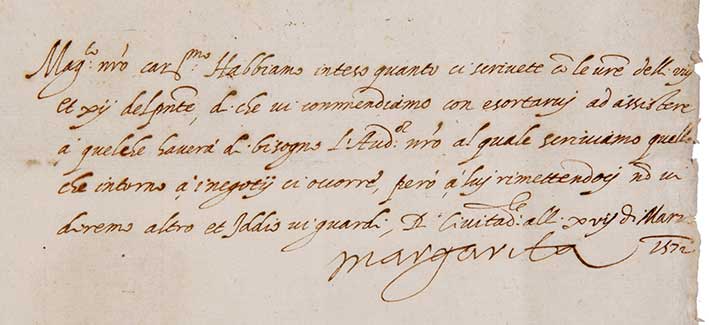 Mag.co nr̃o car.mo Habbiamo inteso quanto ci scrivete cõ le vr̃e delli viij
et xij del pñte, di che vi commendiamo con esortarvi ad assistere
à quelche haverà di bisogno l'Aud.or nr̃o al quale scriviamo quello
che intorno à i negotij ci occorre, però à lui rimettendoci nõ vi
diremo altro et Iddio vi guardi, Di Civitad.le alli xvij di Marzo
1572
Margarita